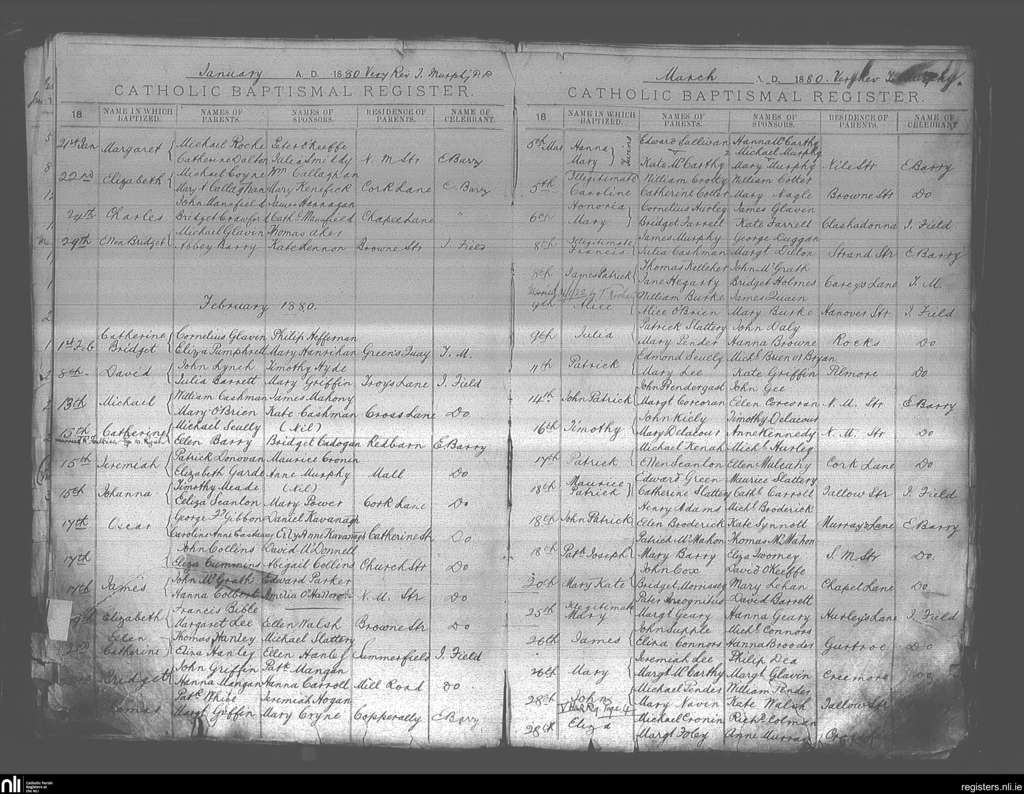 January A. D. 1880 Very Rev T. Murphy P.P.
CATHOLIC BAPTISMAL REGISTER.
18 NAME IN WHICH BAPTIZED. NAMES OF PARENTS. NAMES OF SPONSORS. RESIDENCE OF PARENTS. NAME OF CELEBRANT.
21st Jan Margaret Michael Roche Peter O'Keeffe
Catherine Dalton Julia Smiddy N. M. Str E Barry
22nd Elizabeth Michael Coyne Wm Callaghan
Mary A Callaghan Mary Kenefick Cork Lane E. Barry
24th Charles John Mansfield James Hannagan
Bridget Crawford Cath. Mansfield Chapel Lane "
29th Ellen Bridget Michael Glavin Thomas Aher
Abbey Barry Kate Lennon Browne Str I. Field
February 1880.
1st Feb Catherine Bridget Cornelius Glavin Philip Heffernan
Eliza Pumphrett Mary Hanrihan Green's Quay T. M.
8th David John Lynch Timothy Hyde
Julia Barrett Mary Griffin Troys Lane I. Field
13th Michael William Cashman James Mahony
Mary O'Brien Kate Cashman Cross Lane Do
15th Catherine Michael Scully (Nil)
Ellen Barry Bridget Cadogan Redbarn E. Barry
15th Jeremiah Patrick Donovan Maurice Cronin
Elizabeth Garde Anne Murphy Mall Do
15th Johanna Timothy Meade (Nil)
Eliza Scanlon Mary Power Cork Lane Do
17th Oscar George Fitz Gibbon Daniel Kavanagh
Caroline Anne Kavanagh Catherine St Do
17th John Collins David O'Donnell
Eliza Cummins Abigail Collins Church Str Do
17th James John McGrath Edward Parker
Hanna Colbert Amelia O'Halloran N. M. Str Do
Elizabeth Francis Bible
Margaret Lee Ellen Walsh Browne Str Do
22nd Ellen Catherine Thomas Hanley Michael Slattery
Eliza Hanley Ellen Hanley Summerfield I. Field
Bridget John Griffin Patk Mangan
Hanna Mangan Hanna Carroll Mill Road Do
Patk White Jeremiah Hogan
Margt Griffin Mary Coyne Copperally E Barry
March A. D. 1880. Very Rev T. Murphy.
CATHOLIC BAPTISMAL REGISTER.
18 NAME IN WHICH BAPTIZED. NAMES OF PARENTS. NAMES OF SPONSORS. RESIDENCE OF PARENTS. NAME OF CELEBRANT
5th Mar Hanna Mary Twins Edward Sullivan Hanna McCarthy & Michael Murphy
Kate McCarthy Mary Murphy Nile Str E Barry
5th Illegitimate Caroline William Crotty William Cotter
Catherine Cotter Mary Nagle Browne Str Do
6th Honoria Mary Cornelius Hurley James Glavin
Bridget Farrell Kate Farrell Clashadonna I. Field
8th Illegitimate Francis James Murphy George Duggan
Julia Cashman Margt Dillon Strand Str E Barry
8th James Patrick Thomas Kelleher John McGrath
Jane Hegarty Bridget Holmes Careys Lane T. M.
9th Alice William Burke James Quain
Alice O'Brien Mary Burke Hanover Str I. Field
9th Julia Patrick Slattery John Daly
Mary Pender Hanna Browne Rocks Do
11th Patrick Edmond Scully Michl Buenot Bryan
Mary Lee Kate Griffin Pilmore Do
14th John Patrick John Prendergast John Gee
Margt Corcoran Ellen Corcoran N. M. Str E Barry
16th Timothy John Kiely Timothy Delacour
Mary Delacour Anne Kennedy N. M. Str Do
17th Patrick Michael Kenah Michl Hurley
Ellen Scanlon Ellen Mulcahy Cork Lane Do
18th Maurice Patrick Edward Green Maurice Slattery
Catherine Slattery Cathe Carroll Tallow Str I. Field
18th John Patrick Henry Adams Michl Broderick
Ellen Broderick Kate Synnott Murray's Lane E Barry
18th Patk Joseph Patrick McMahon Thomas McMahon
Mary Barry Eliza Twomey S. M Str Do.
20th Mary Kate John Cox David O'Keeffe
Bridget Morrissey Mary Lehan Chapel Lane Do
25th Illegitimate Mary Peter Incognitus David Barrett
Margt Geary Hanna Geary Hurley's Lane I. Field
26th James John Supple Michl Connors
Eliza Connors Hanna Brooder Gurtroe Do
26th Mary Jeremiah Lee Philip Dea
Margt McCarthy Margt Glavin Creemore Do
28th John Michael Pender William Pender
Mary Navin Kate Walsh Tallow Str
28th Eliza Michael Cronin Richd Colman
Margt Foley Anne Murray
nli Catholic Parish Registers at the NLI
registers.nli.ie